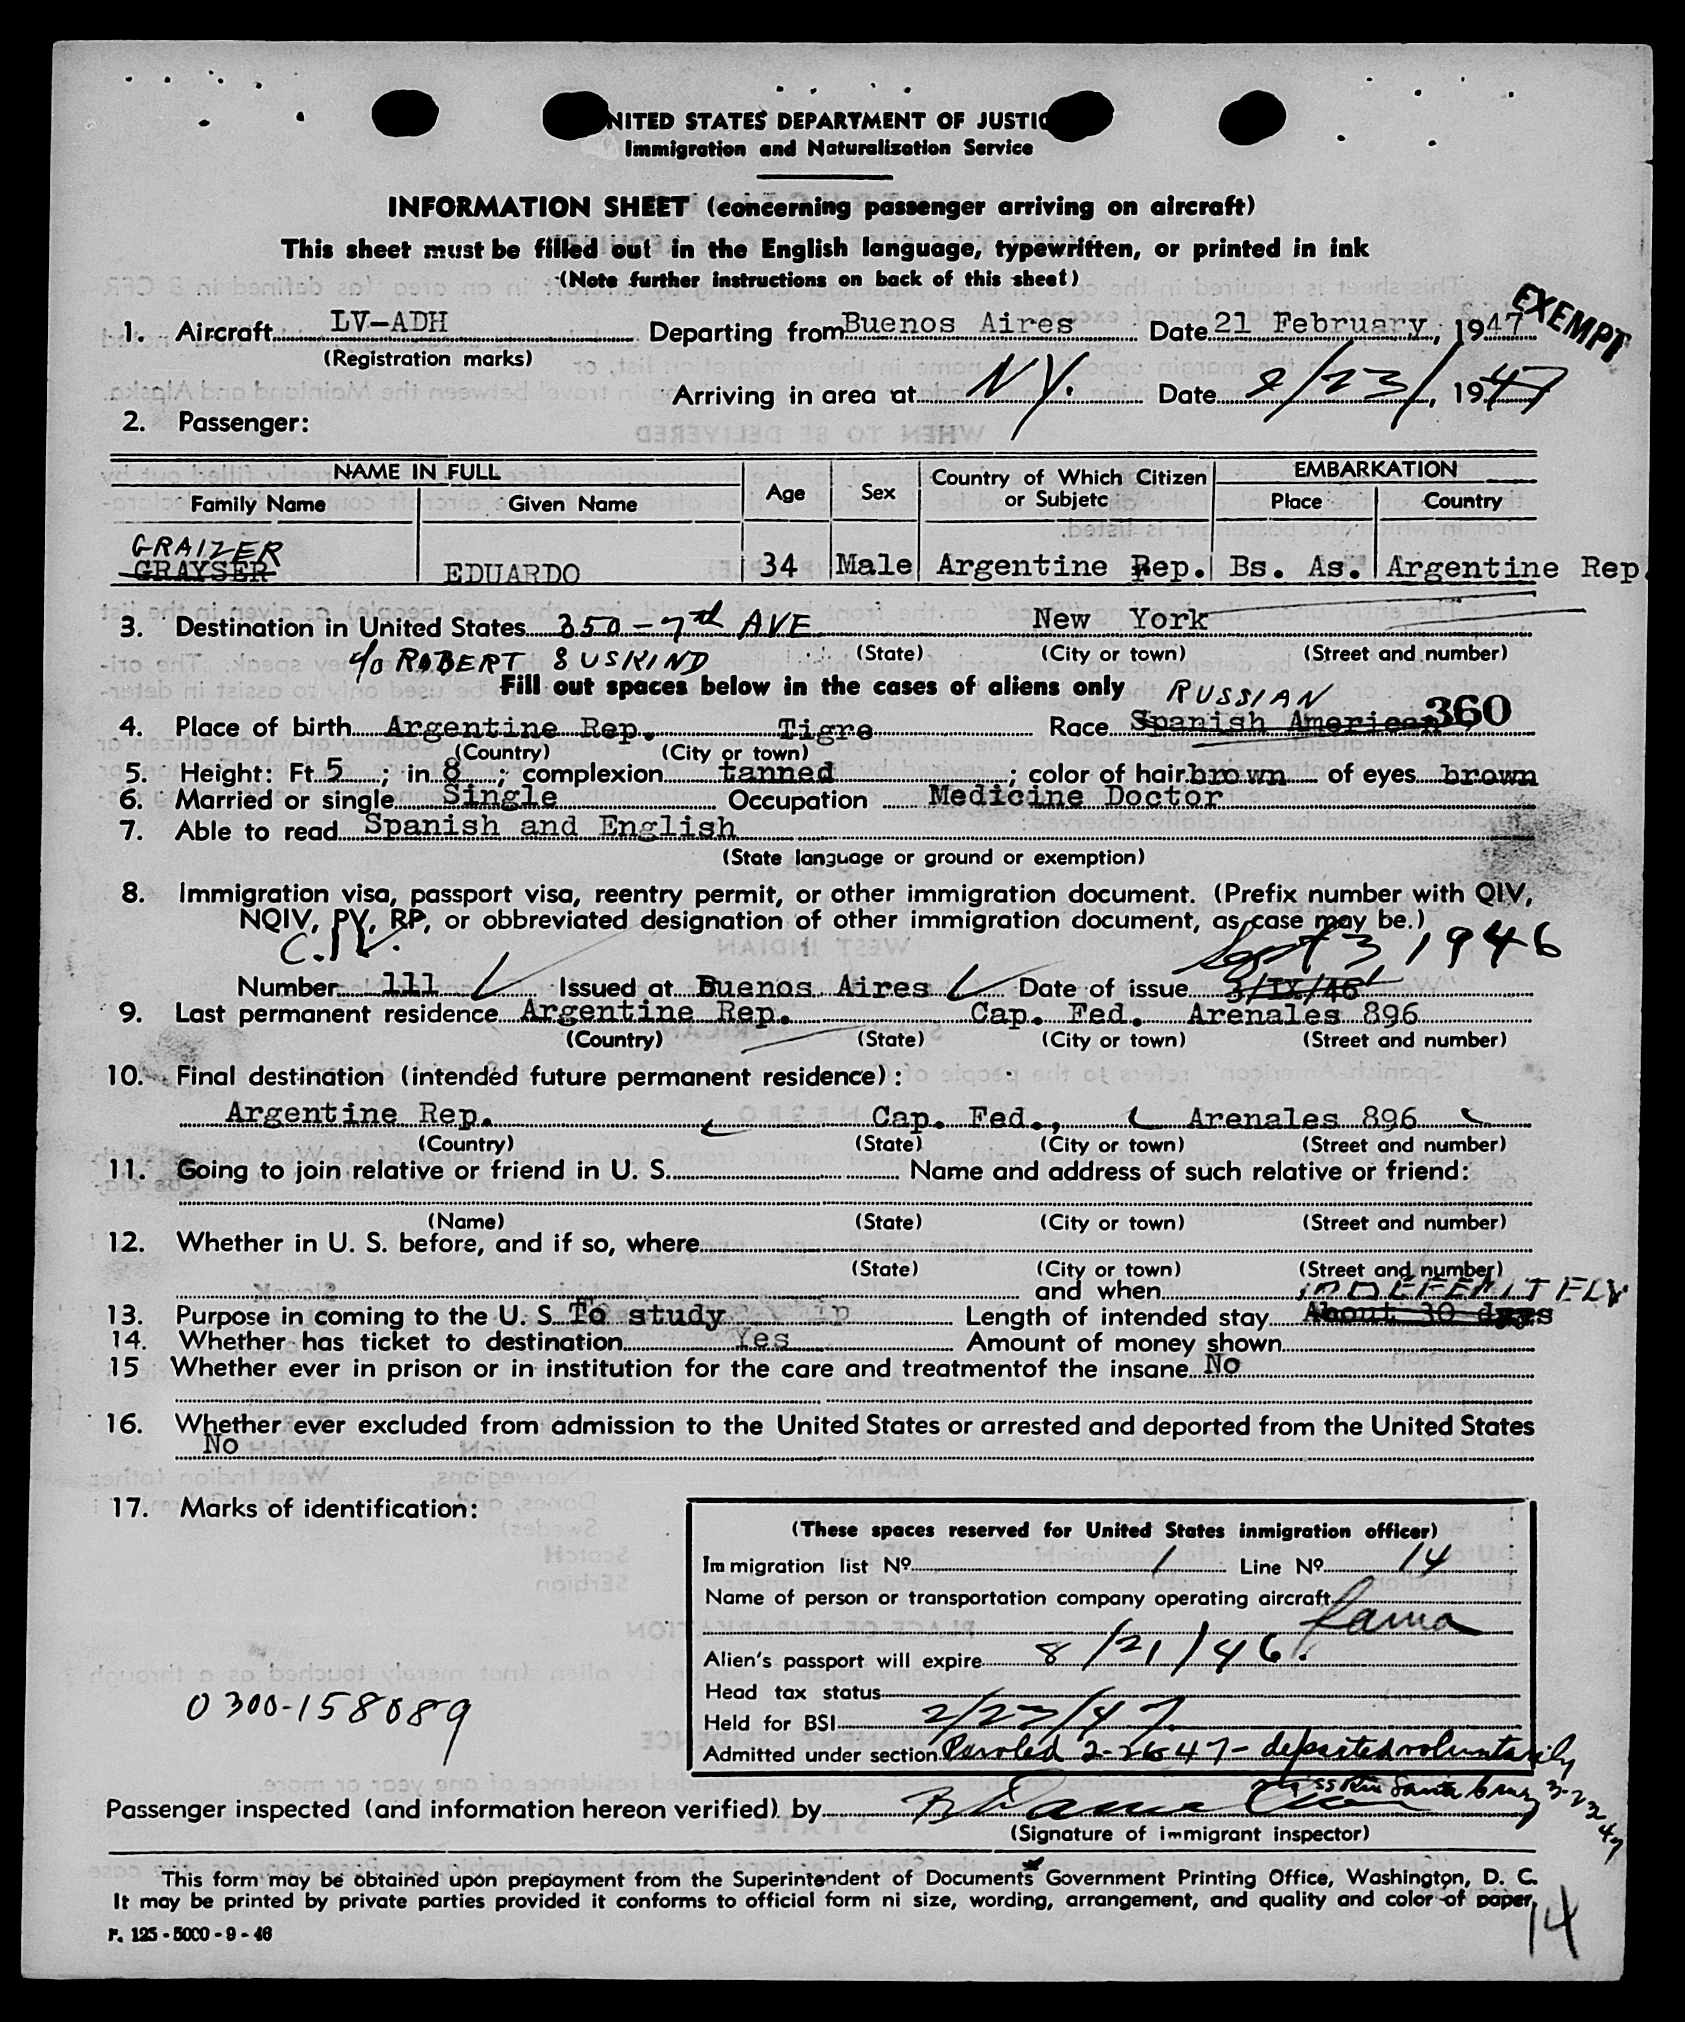 UNITED STATES DEPARTMENT OF JUSTIC
Immigration and Naturalization Service
INFORMATION SHEET (concerning passenger arriving on aircraft)
This sheet must be filled out in the English language, typewritten, or printed in ink
(Note further instructions on back of this sheet)
EXEMPT
1. Aircraft LV-ADH Departing from Buenos Aires Date 21 February, 1947
(Registration marks)
Arriving in area at N.Y. Date 2/23/, 1947
2. Passenger:
NAME IN FULL Age Sex Country of Which Citizen or Subjetc EMBARKATION
Family Name Given Name Place Country
GRAIZER
GRAYSER EDUARDO 34 Male Argentine Rep. Bs. As. Argentine Rep.
3. Destination in United States 350-7th AVE New York
(State) (City or town) (Street and number)
c/o ROBERT SUSKIND
Fill out spaces below in the cases of aliens only
RUSSIAN 360
4. Place of birth Argentine Rep. Tigre Race Spanish American
(Country) (City or town)
5. Height: Ft 5; in 8; complexion tanned; color of hair brown of eyes brown
6. Married or single Single Occupation Medicine Doctor
7. Able to read Spanish and English
(State language or ground or exemption)
8. Immigration visa, passport visa, reentry permit, or other immigration document. (Prefix number with QIV,
NQIV, PV, RP, or obbreviated designation of other immigration document, as case may be.)
Sept 3 1946
Number 111 Issued at Buenos Aires Date of issue 3/IX/46
9. Last permanent residence Argentine Rep. Cap. Fed. Arenales 896
(Country) (State) (City or town) (Street and number)
10. Final destination (intended future permanent residence):
Argentine Rep. Cap. Fed., Arenales 896
(Country) (State) (City or town) (Street and number)
11. Going to join relative or friend in U. S. Name and address of such relative or friend:
(Name) (State) (City or town) (Street and number)
12. Whether in U. S. before, and if so, where
(State) (City or town) (Street and number)
and when
INDEFENITELY
13. Purpose in coming to the U. S. To study Length of intended stay About 30 days
14. Whether has ticket to destination Yes Amount of money shown
15 Whether ever in prison or in institution for the care and treatmentof the insane No
16. Whether ever excluded from admission to the United States or arrested and deported from the United States
No
17. Marks of identification:
(These spaces reserved for United States inmigration officer)
Immigration list Nº 1 Line Nº 14
Name of person or transportation company operating aircraft
Fama
Alien's passport will expire 8/21/46.
Head tax status
Held for BSI 2/23/47
Admitted under section Paroled 2-26-47 - departed voluntarily
0300-158089
SS Rio Santa Cruz 3-22-47
Passenger inspected (and information hereon verified) by
(Signature of immigrant inspector)
This form may be obtained upon prepayment from the Superintendent of Documents Government Printing Office, Washington, D. C.
It may be printed by private parties provided it conforms to official form ni size, wording, arrangement, and quality and color of paper.
14
F. 125 - 5000 - 9 - 46